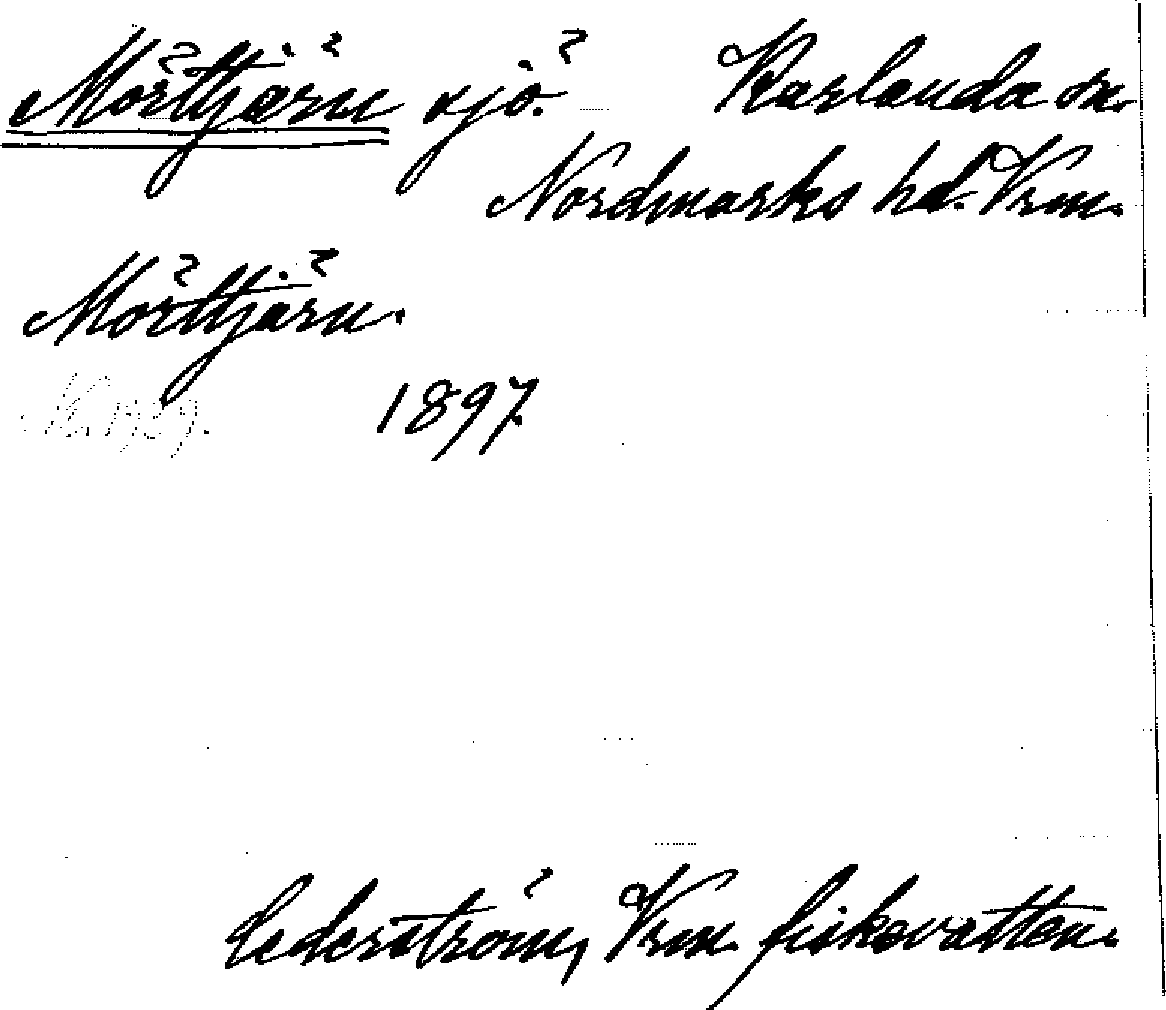 Mörttjärn sjö. Karlanda sn.
Nordmarks hd. Vrm.
Mörttjärn.
1897.
Cederström, Vrm. fiskevatten.